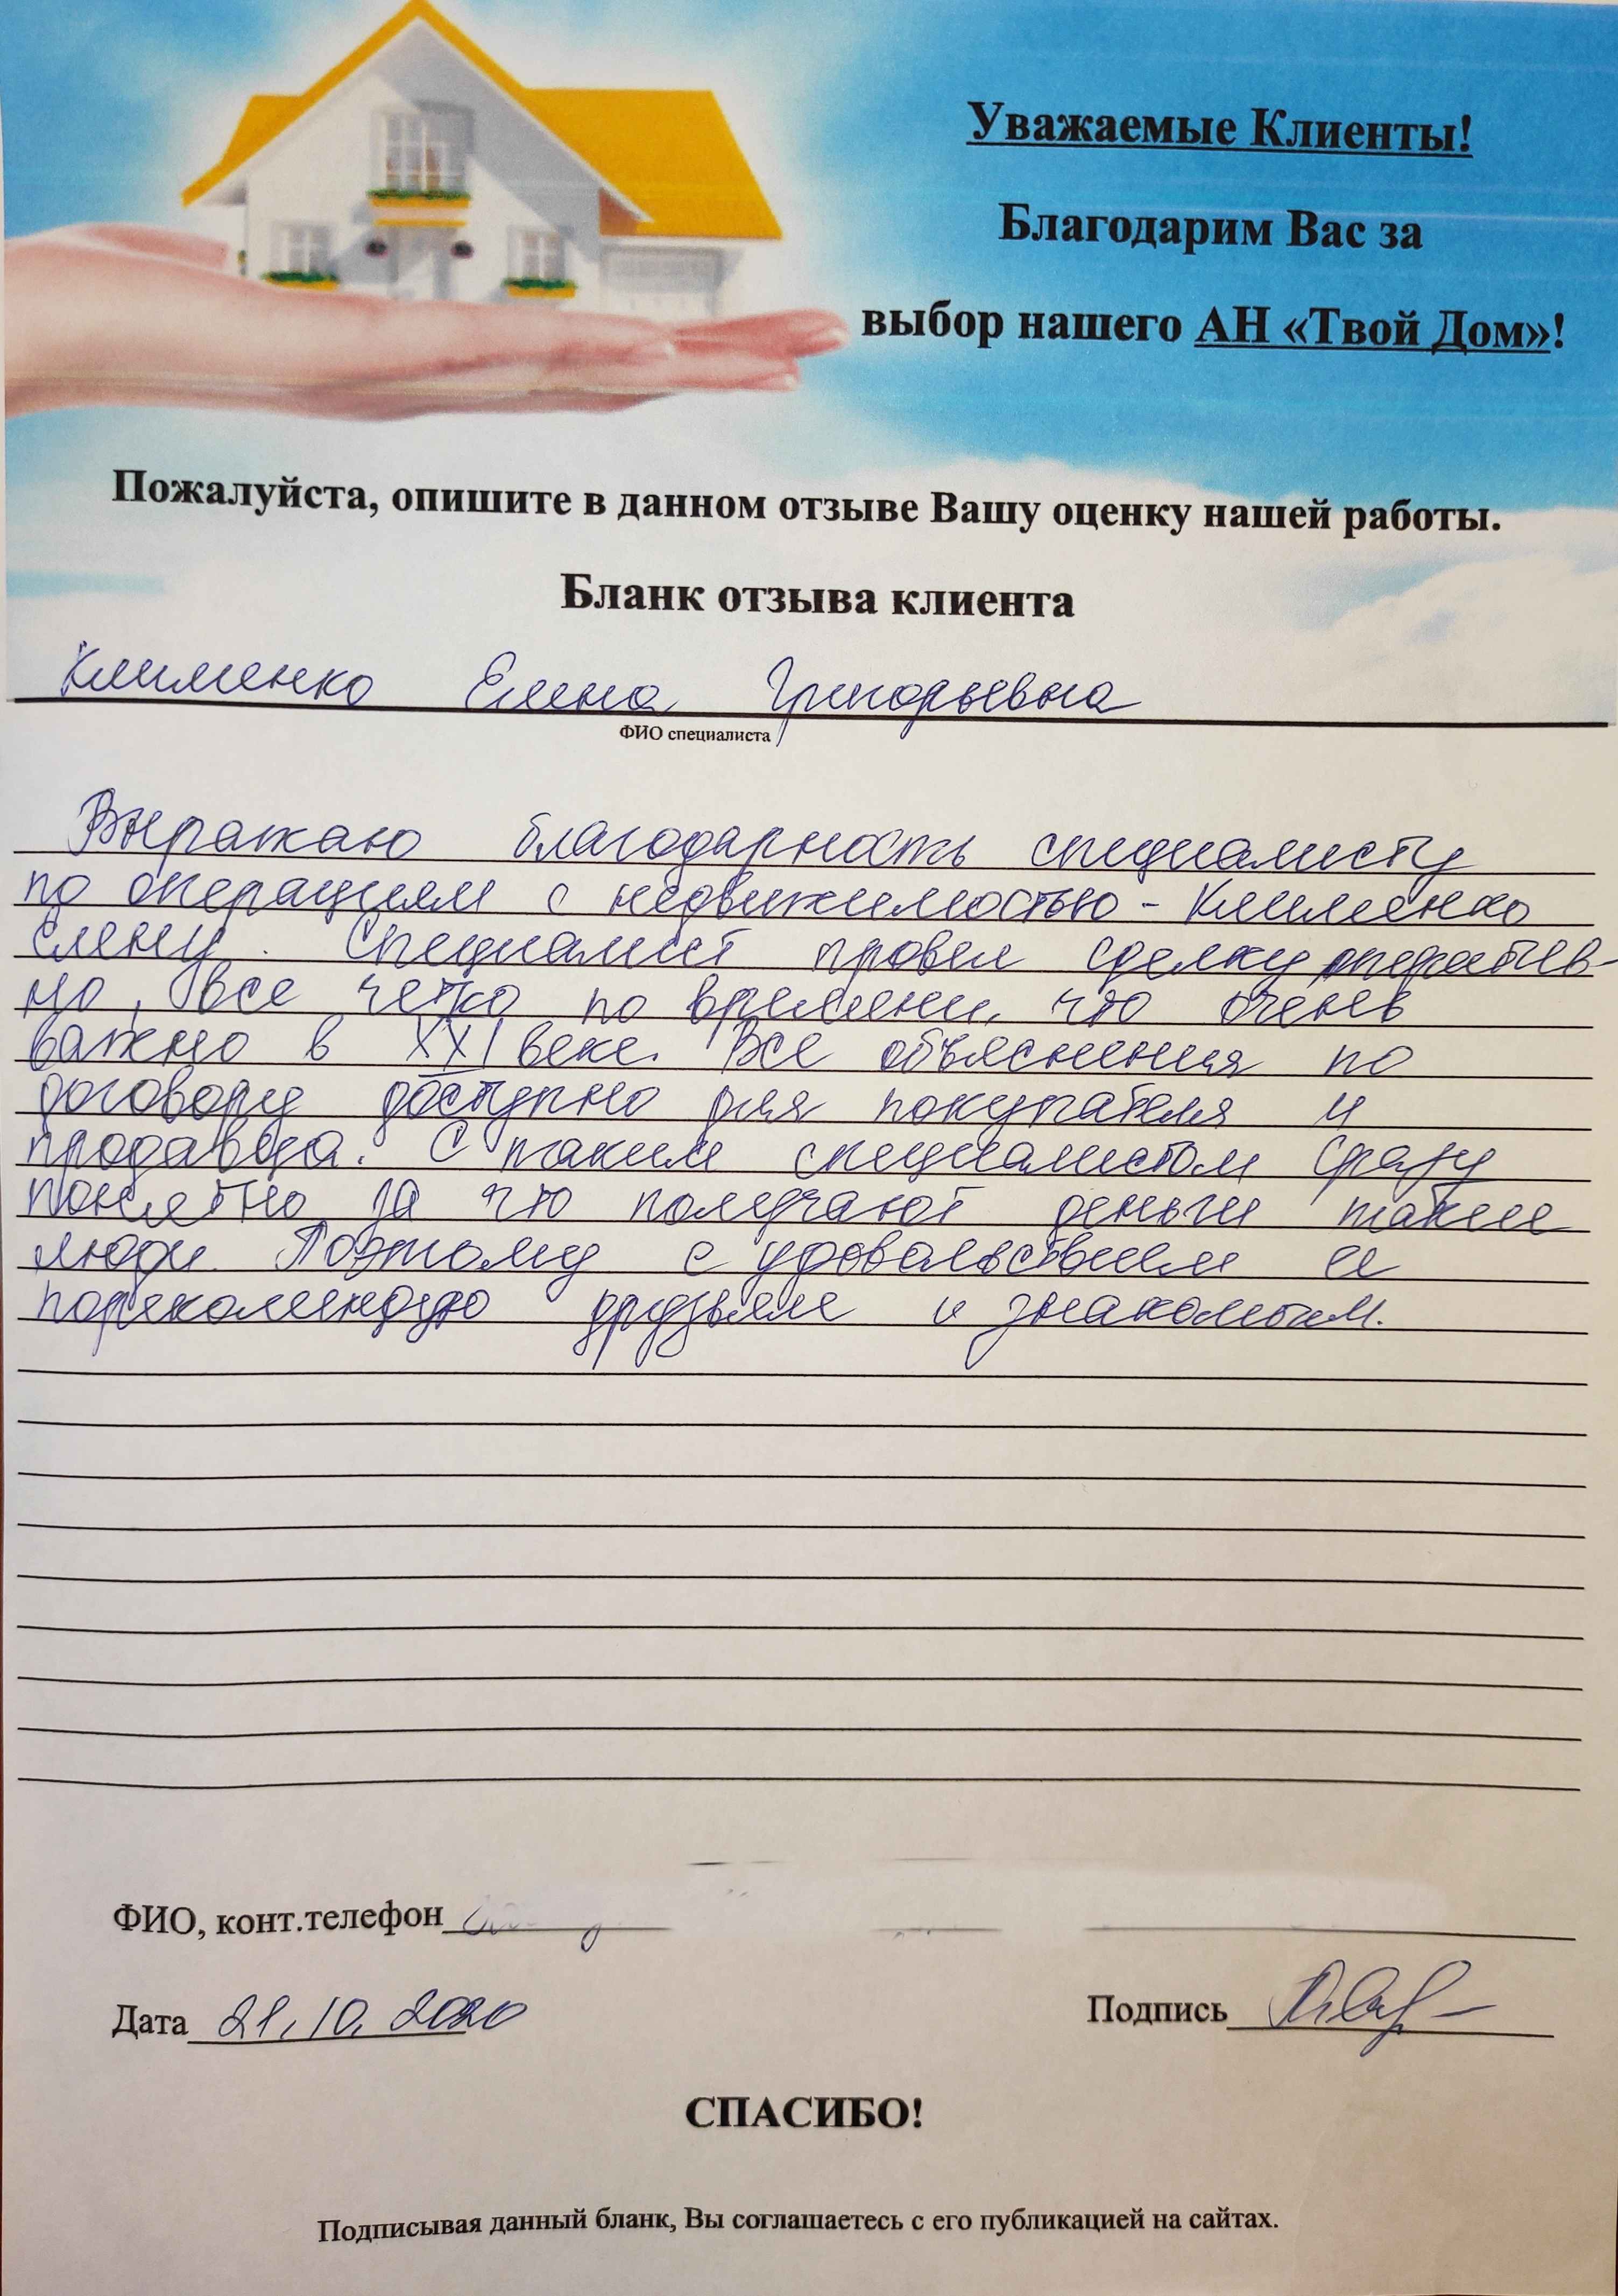 Уважаемые Клиенты!
Благодарим Вас за
выбор нашего АН «Твой Дом»!
Пожалуйста, опишите в данном отзыве Вашу оценку нашей работы.
Бланк отзыва клиента
Клименко Елена Григорьевна
ФИО специалиста
Выражаю благодарность специалисту
по операциям с недвижимостью - Клименко
Елену. Специалист провел сделку оператив-
но, все четко по времени, что очень
важно в XXI веке. Все объяснения по
договору доступно для покупателя и
продавца. С таким специалистом сразу
понятно за что получают деньги такие
люди. Поэтому с удовольствием ее
порекомендую друзьям и знакомым.
ФИО, конт.телефон
Дата 21.10.2020
Подпись
СПАСИБО!
Подписывая данный бланк, Вы соглашаетесь с его публикацией на сайтах.